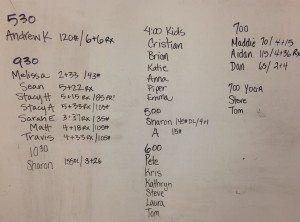 530
Andrew K 120# / 6+6 RX
930
Melissa 2+33 / 43#
Sean 5+22 RX
Stacy H 5+15 RX / 85 PR!
Stacy A 5+33 RX / 105#
Sarah E 3+37 RX / 35#
Matt 4+18 RX / 105#
Travis 4+33 RX / 105#
1030
Sharon 155# / 3+26
4:00 Kids
Cristian
Brian
Katie
Anna
Piper
Emma
500
Sharon 145# DL / 4+1
A 15#
600
Pete
Kris
Kathryn
Steve
Laura
Tom
700
Maddie 70 / 4+15
Aidan 115 / 4+36 RX
Dan 65 / 2+4
700 YOGA
Steve
Tom